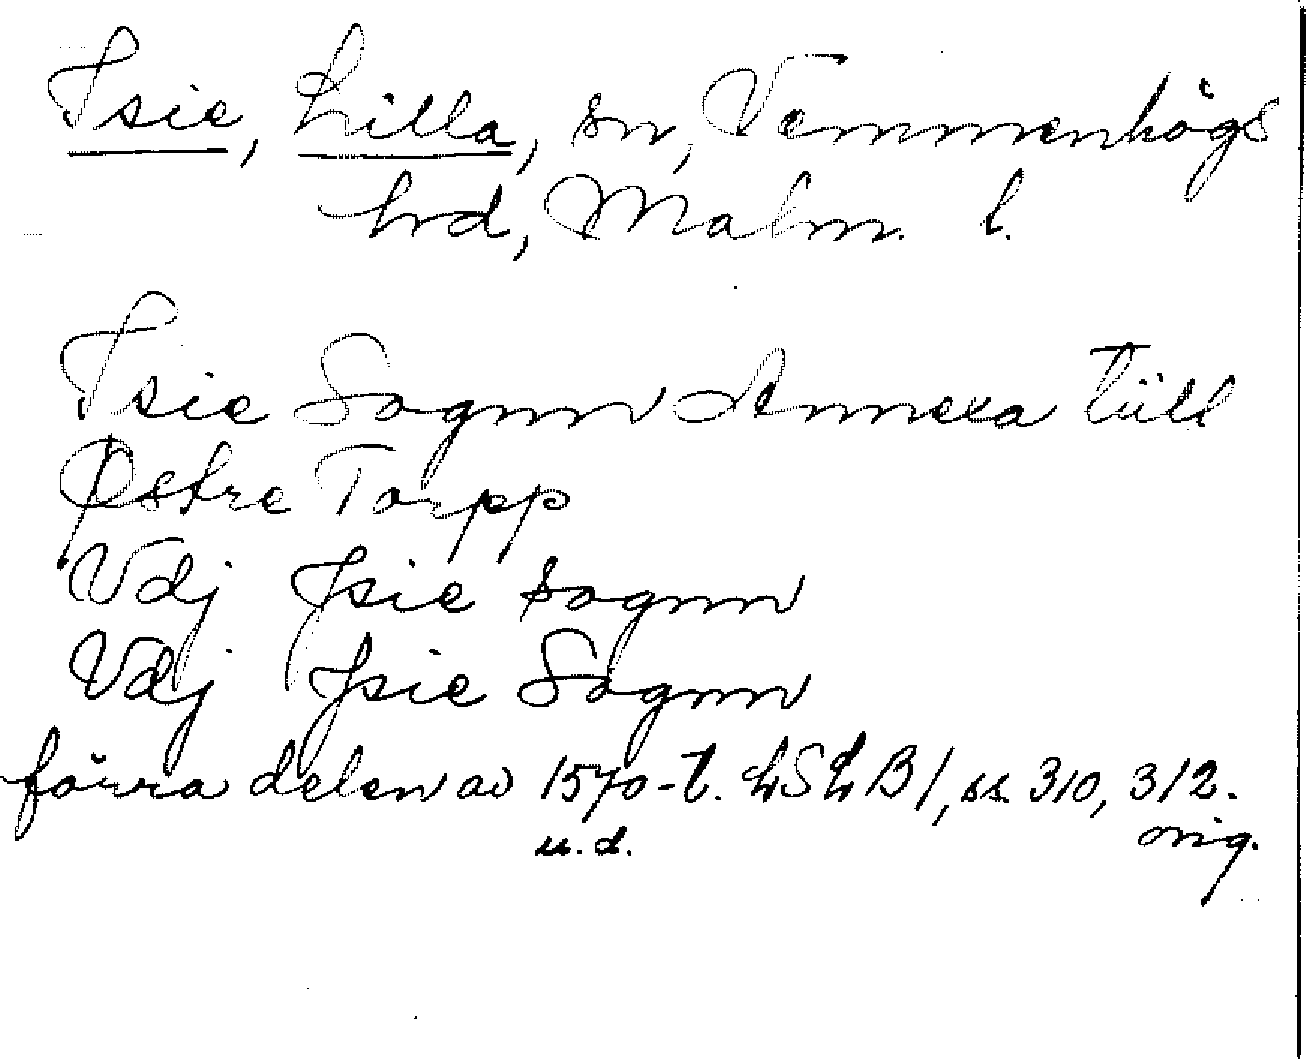 Isie, Lilla, sn, Vemmenhögs
hrd, Malm. l.
Isie Sognn Annexa tüll
Østre Torpp
Vdj Jsie sognn
Vdj Jsie Sognn
förra delen av 1570-t. LSLB 1, ss. 310, 312.
u.d. orig.